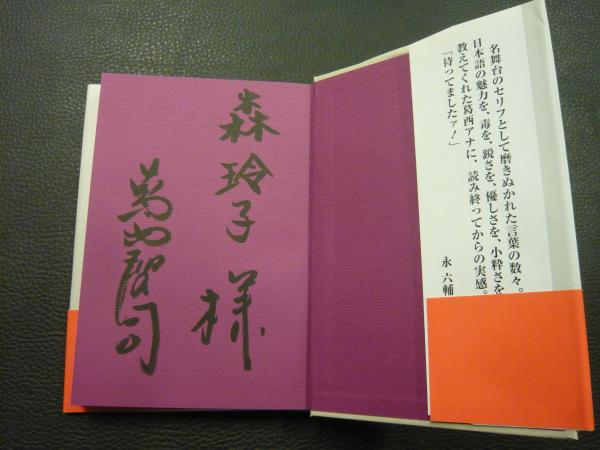 名舞台のセリフとして磨きぬかれた言葉の数々。
日本語の魅力を、毒を、鋭さを、優しさを、小粋さを
教えてくれた葛西アナに、読み終ってからの実感。
「待ってましたァ！」
永 六輔
森 玲子 様
葛西聖司